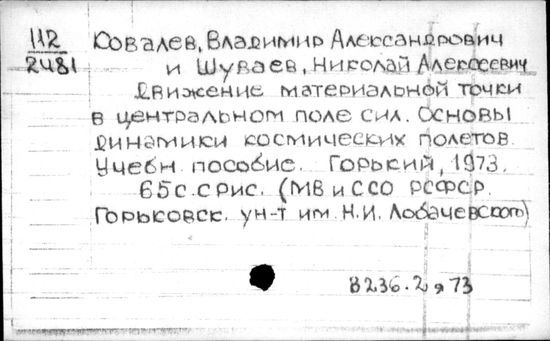 112
2481
Ковалев, Владимир Александрович
и Шуваев, Николай Алексеевич
Движение материальной точки
в центральном поле сил. Основы
динамики космических полетов.
Учебн. пособие. Горький, 1973.
65с. с рис. (МВ и ССО РСФСР.
Горьковск. ун-т им. Н.И. Лобачевского)
В236.2 я 73